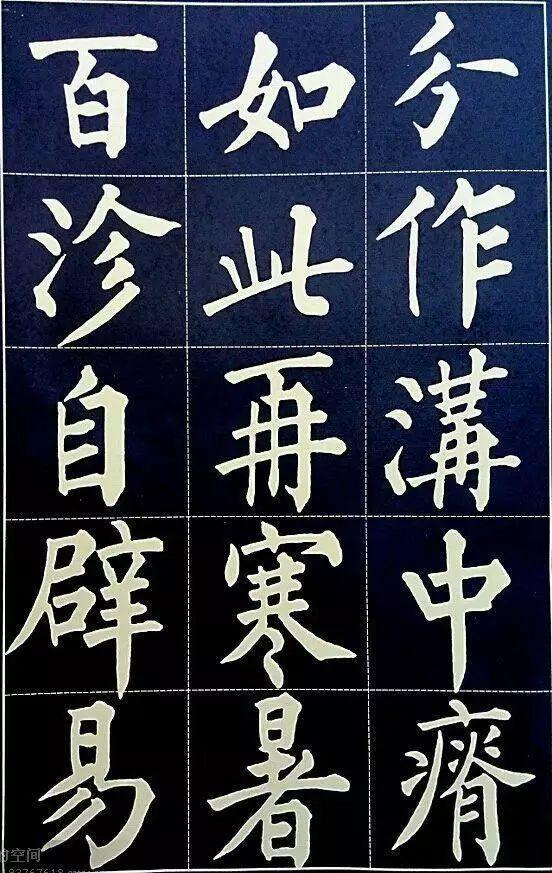 分作溝中瘠
如此再寒暑
百沴自辟易
的空间